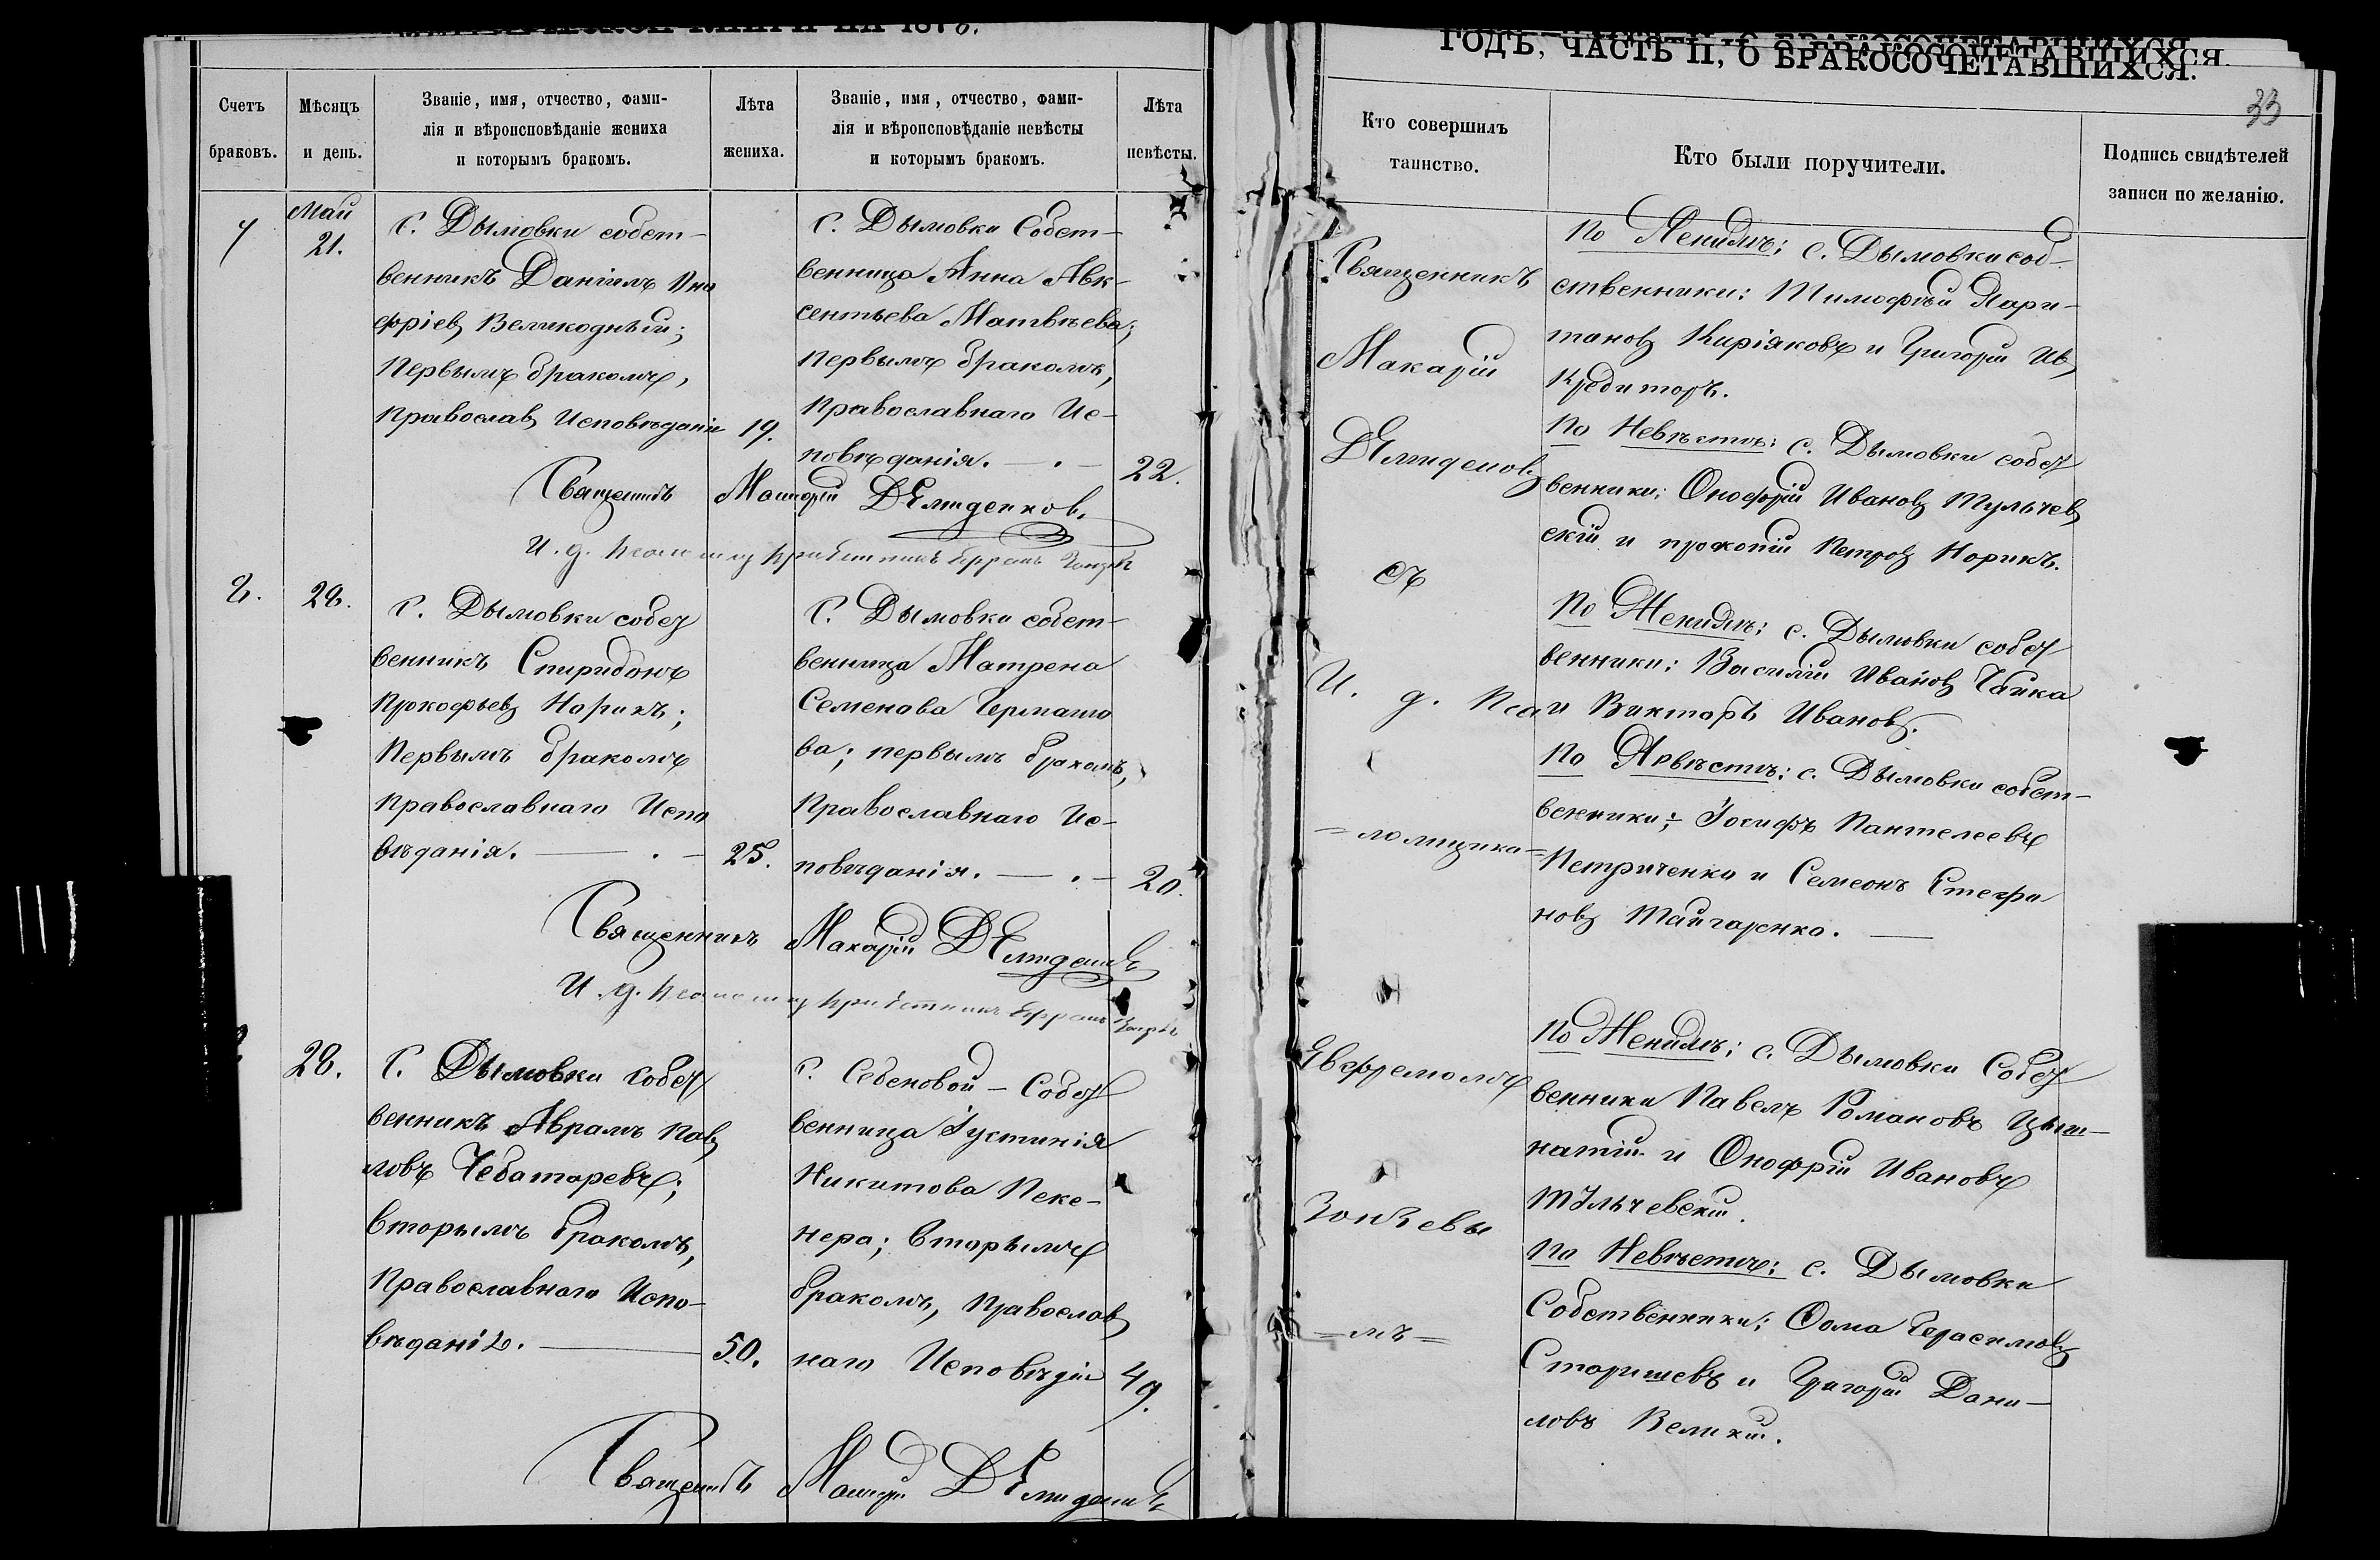 МЕТРИЧЕСКОЙ КНИГИ НА 1878.
Счетъ браковъ.
Мѣсяцъ и день.
Званіе, имя, отчество, фами-
лія и вѣроисповѣданіе жениха
и которымъ бракомъ.
Лѣта жениха.
Званіе, имя, отчество, фами-
лія и вѣроисповѣданіе невѣсты
и которымъ бракомъ.
Лѣта невѣсты.
7
Май
21.
С. Дымовки собст-
венникъ Даніилъ Ону
фріевъ Великоднѣй;
Первымъ бракомъ,
Православ Исповѣданія
19.
С. Дымовки Собст-
венница Анна Авк-
сентьева Матвѣева;
первымъ бракомъ,
Православнаго Ис-
повѣданія. — . —
22.
Священникъ Макарій
И. д. Псаломщ
8.
28.
С. Дымовки собст
венникъ Спиридонъ
Прокофьевъ Норикъ;
Первымъ бракомъ
Православнаго Испо
вѣданія. — . —
25.
С. Дымовки собст-
венница Матрена
Семенова
ва; первымъ бракомъ,
Православнаго Ис-
повѣданія. — . —
20.
Священникъ Макарій
И. д. Псаломщ
28.
С. Дымовки собст
венникъ Аврамъ Пав
ловъ Чеботаревъ;
Вторымъ бракомъ,
Православнаго Испо-
вѣданія. —
50.
С. Собст
венница Іустинія
Никитова Пеке-
нера; Вторымъ
бракомъ, Православ
наго Исповѣдія
49.
Священникъ Макарій
ГОДЪ, ЧАСТЬ II, О БРАКОСОЧЕТАВШИХСЯ.
33
Кто совершилъ таинство.
Кто были поручители.
Подпись свидѣтелей записи по желанію.
Священникъ
Макарій
съ
И. д. Пса
=ломщика=
=мъ=
По Женихѣ: с. Дымовки соб-
ственники: Тимофей Хари-
тоновъ Киріяковъ и Григорій Ив
Кредиторъ.
По Невѣстѣ: с. Дымовки собст
венники: Онофрій Ивановъ Тульчев
скій и прокопій Петровъ Норикъ.
По Женихѣ: с. Дымовки собст
венники: Василій Ивановъ Чапка
и Викторъ Ивановъ.
По Невѣстѣ: с. Дымовки собст-
венники: Іосифъ Пантелеевъ
Петриченко и Семеонъ Стефа
новъ Тайгаренко. —
По Женихѣ: с. Дымовки Собст
венники Павелъ Романовъ
и Онофрій Ивановъ
Тульчевскій.
По Невѣстѣ: с. Дымовки
Собственники: Ѳома Герасимовъ
Старишевъ и Григорій Дани-
ловъ Великій.